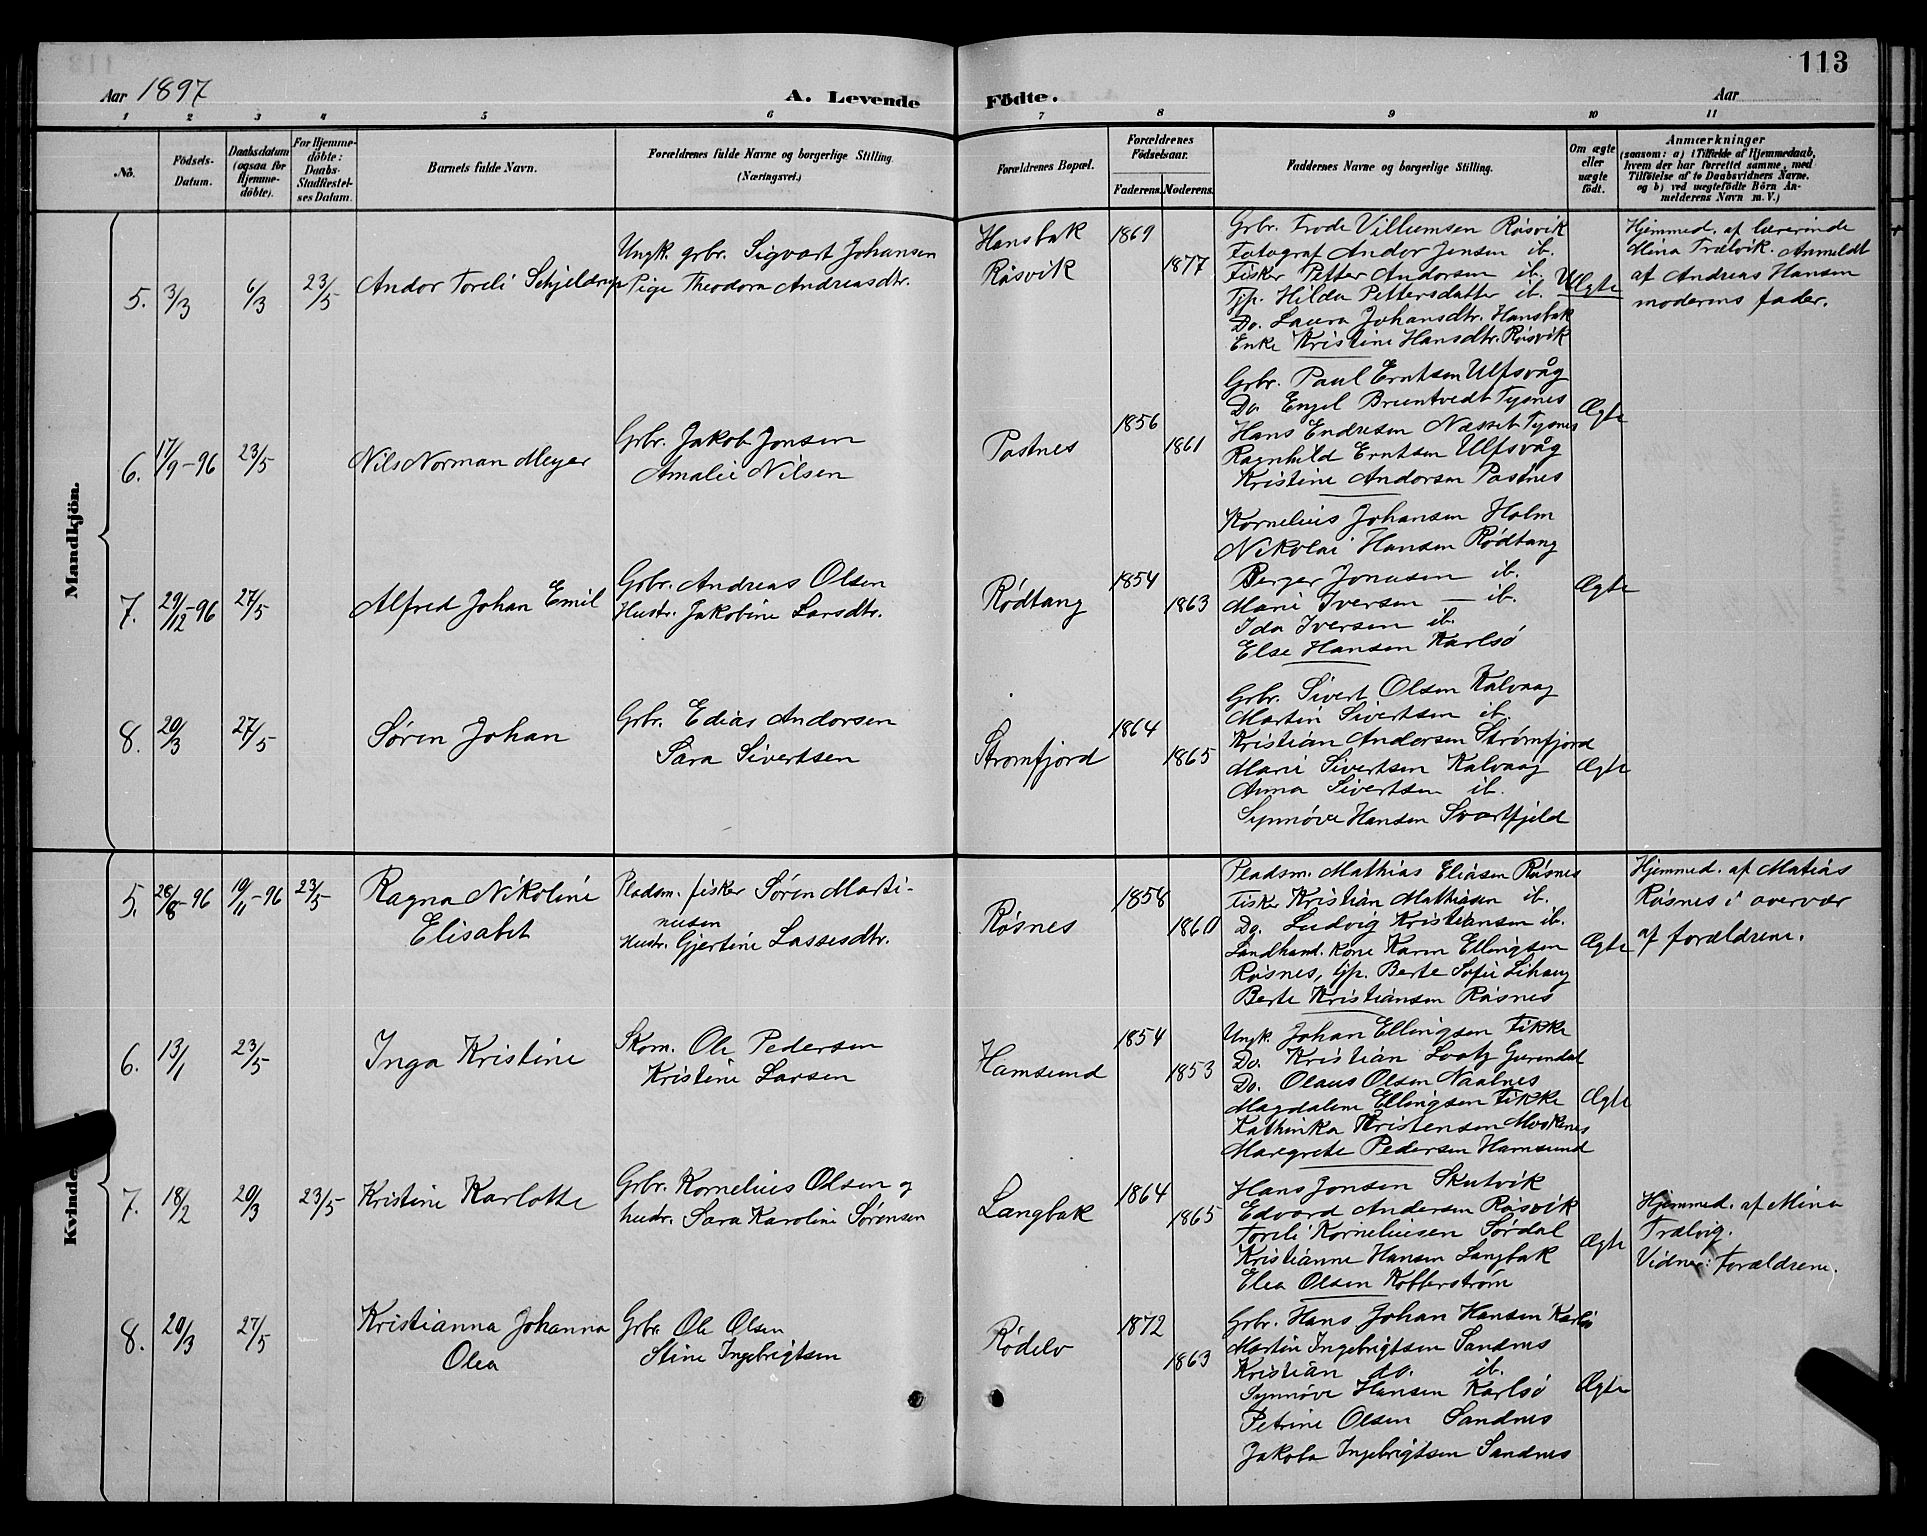 113
Aar 1897
A. Levende Födte.
Aar
1 2 3 4 5 6 7 8 9 10 11
No.
Födsels-
Datum.
Daabsdatum
(ogsaa for
Hjemme-
döbte).
For Hjemme-
döbte:
Daabs-
Stadfæstel-
ses Datum.
Barnets fulde Navn.
Forældrenes fulde Navne og borgerlige Stilling.
(Næringsvei.)
Forældrenes Bopæl.
Forældrenes
Födselsaar.
Faderens. Moderens.
Faddernes Navne og borgerlige Stilling.
Om ægte
eller
uægte
födt.
Anmærkninger
(saasom: a) i Tilfælde af Hjemmedaab,
hvem der har forrettet samme, med
Tilföielse af to Daabsvidners Navne.
og b) ved uægtefödte Börn An-
melderens Navn m. V.)
Mandkjön.
5. 3/3 6/3 23/5
Andor Toreli Schjelderup
Ungk. grbr. Sigvart Johansen
Pige Theodora Andreasdtr.
Hansbak
Røsvik
1869
1877
Grbr. Frode Villumsen Røsvik
Fotograf Andor Jensen ib.
Fisker Petter Andorsen ib.
Tjp. Hilda Pettersdatter ib.
Do. Laura Johansdtr. Hansbak
Enke Kristine Hansdtr. Røsvik
Uægte
Hjemmed. af lærerinde
Mina Trælvik. Anmeldt
af Andreas Hansen
moderens fader.
6. 17/9-96 23/5
Nils Norman Meyer
Grbr. Jakob Jonsen
Amalie Nilsen
Postnes
1856
1861
Grbr. Paul Erntsen Ulfsvåg
Do. Engel Bruntvedt Tysnes
Hans Endresen Næsset Tysnes
Ragnhild Erntsen Ulfsvåg
Kristine Andorsen Postnes
Ægte
7. 29/12-96 27/5
Alfred Johan Emil
Grbr. Andreas Olsen
Hustr. Jakobine Larsdtr.
Rødtang
1854
1863
Kornelius Johansen Holm
Nikolai Hansen Rødtang
Berger Jonasen ib.
Marie Iversen — ib.
Ida Iversen ib.
Else Hansen Karlsø
Ægte
8. 20/3 27/5
Søren Johan
Grbr. Edias Andorsen
Sara Sivertsen
Strømfjord
1864
1865
Grbr. Sivert Olsen Kalvaag
Martin Sivertsen ib.
Kristian Andorsen Strømfjord
Marie Sivertsen Kalvaag
Anna Sivertsen ib.
Synnøve Hansen Svartfjeld
Ægte
Kvinde
5. 28/8-96 19/11-96 23/5
Ragna Nikoline
Elisabet
Pladsm. fisker Søren Marti-
nusen
Hustr. Gjertine Lassesdtr.
Røsnes
1858
1860
Pladsm. Mathias Eliasen Røsnes
Fisker Kristian Mathiasen ib.
Do. Ludvig Kristiansen ib.
Landhand. kone Karen Ellingsen
Røsnes, tjp. Berte Sofie Lihaug
Berte Kristiansen Røsnes
Ægte
Hjemmed. af Matias
Røsnes i overvær
af forældrene.
6. 13/1 23/5
Inga Kristine
Skom. Ole Pedersen
Kristine Larsen
Hamsund
1854
1853
Ungk. Johan Ellingsen Fikke
Do. Kristian
Do. Olaus Olsen Naalnes
Magdalene Ellingsen Fikke
Kathinka Kristensen Moskenes
Margrete Pedersen Hamsund
Ægte
7. 18/2 20/3 23/5
Kristine Karlotte
Grbr. Kornelius Olsen og
hustr. Sara Karoline Sørensen
Langbak
1864
1865
Hans Jonsen Skutvik
Edvard Andersen Røsvik
Toreli Korneliusen Sørdal
Kristianne Hansen Langbak
Elea Olsen Kobberstrøm
Ægte
Hjemmed. af Mina
Trælvig.
Vidner: forældrene.
8. 20/3 27/5
Kristianna Johanna
Olea
Grbr. Ole Olsen
Stine Ingebrigtsen
Rødelv
1872
1863
Grbr. Hans Johan Hansen Karlsø
Martin Ingebrigtsen Sandnes
Kristian do. ib.
Synnøve Hansen Karlsø
Petrine Olsen Sandnes
Jakoba Ingebrigtsen Sandnes
Ægte